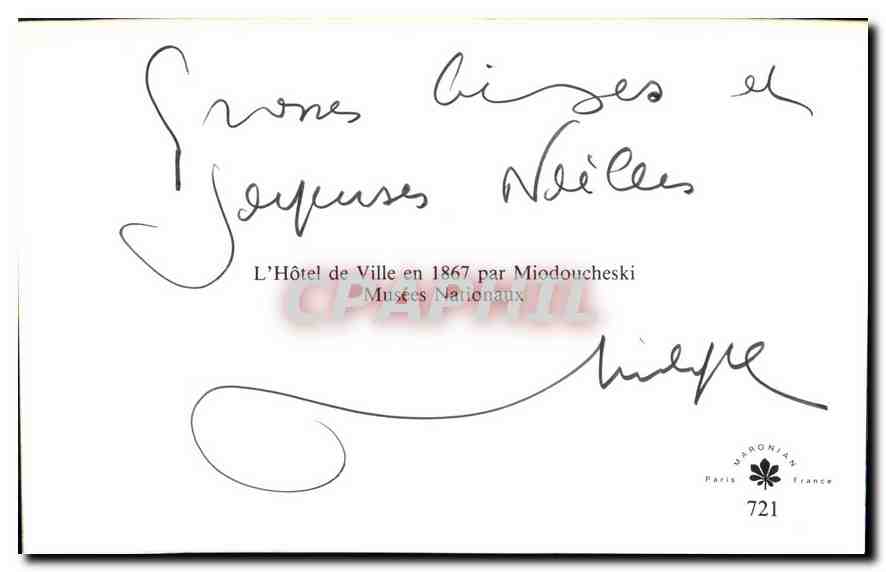 Grosses bises et
Joyeuses Noëlles
L'Hôtel de Ville en 1867 par Miodoucheski
Musées Nationaux
CPAPHIL
MARONIAN
Paris France
721